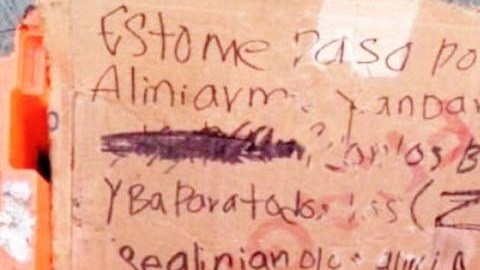 EStome Paso po
Aliniarm y andar
los B
Y Ba Para todos los (Z
Sealinian